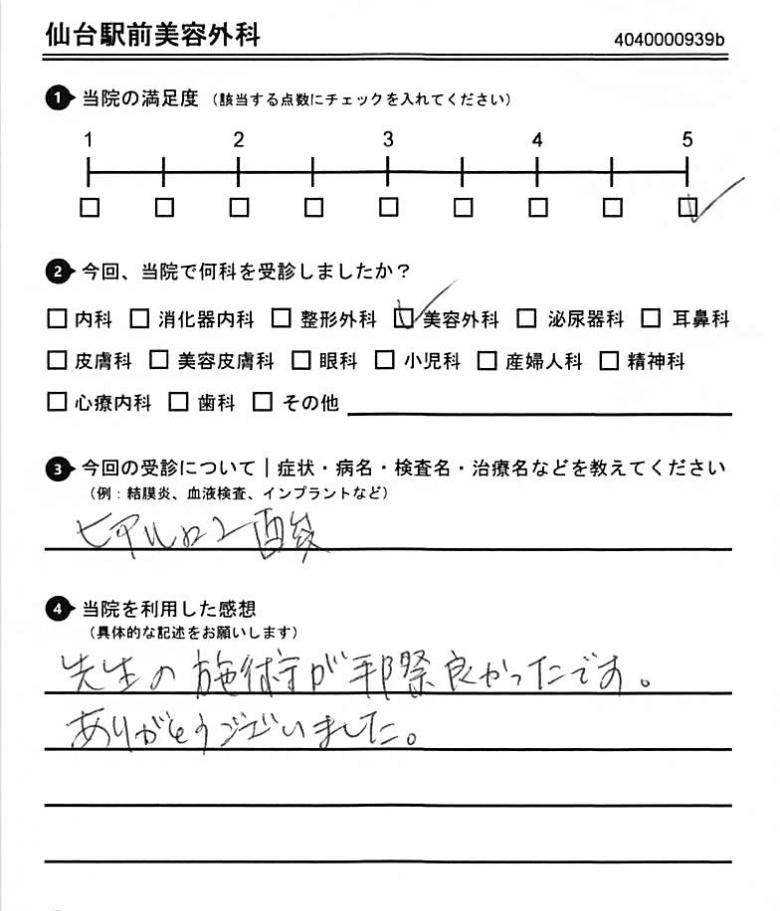 仙台駅前美容外科
4040000939b
1 当院の満足度（該当する点数にチェックを入れてください）
1 2 3 4 5
2 今回、当院で何科を受診しましたか？
内科 消化器内科 整形外科 美容外科 泌尿器科 耳鼻科
皮膚科 美容皮膚科 眼科 小児科 産婦人科 精神科
心療内科 歯科 その他
3 今回の受診について｜症状・病名・検査名・治療名などを教えてください
（例：結膜炎、血液検査、インプラントなど）
ヒアルロン酸
4 当院を利用した感想
（具体的な記述をお願いします）
先生の施術が 良かったです。
ありがとうございました。